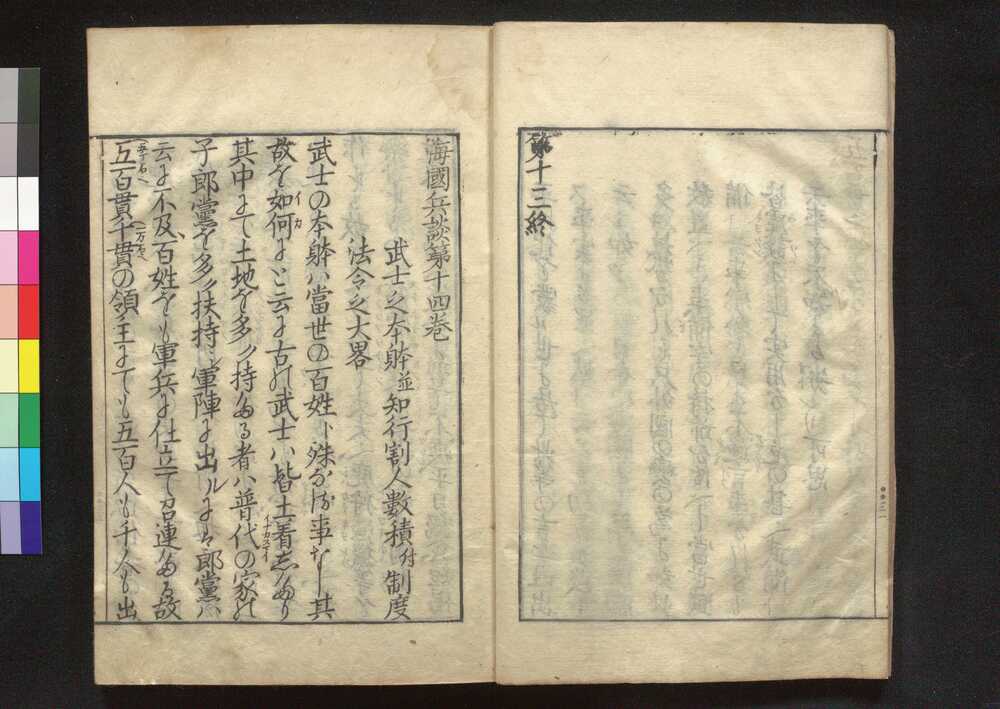 第十三終
海國兵談第十四巻
武士之本躰並知行割人數積付制度
法令之大畧
武士の本躰ハ當世の百姓ト殊ならす事なし其
故を如何イカにと云に古の武士ハ皆土着イナカスマイしたり
其中にて土地を多ク持たる者ハ普代の家の
子郎黨を多ク扶持シ軍陣に出ルにハ郎黨ハ
云に不及百姓をも軍兵に仕立て召連たる故
五百貫五千石也千貫一万石也の領主にても五百人も千人も出